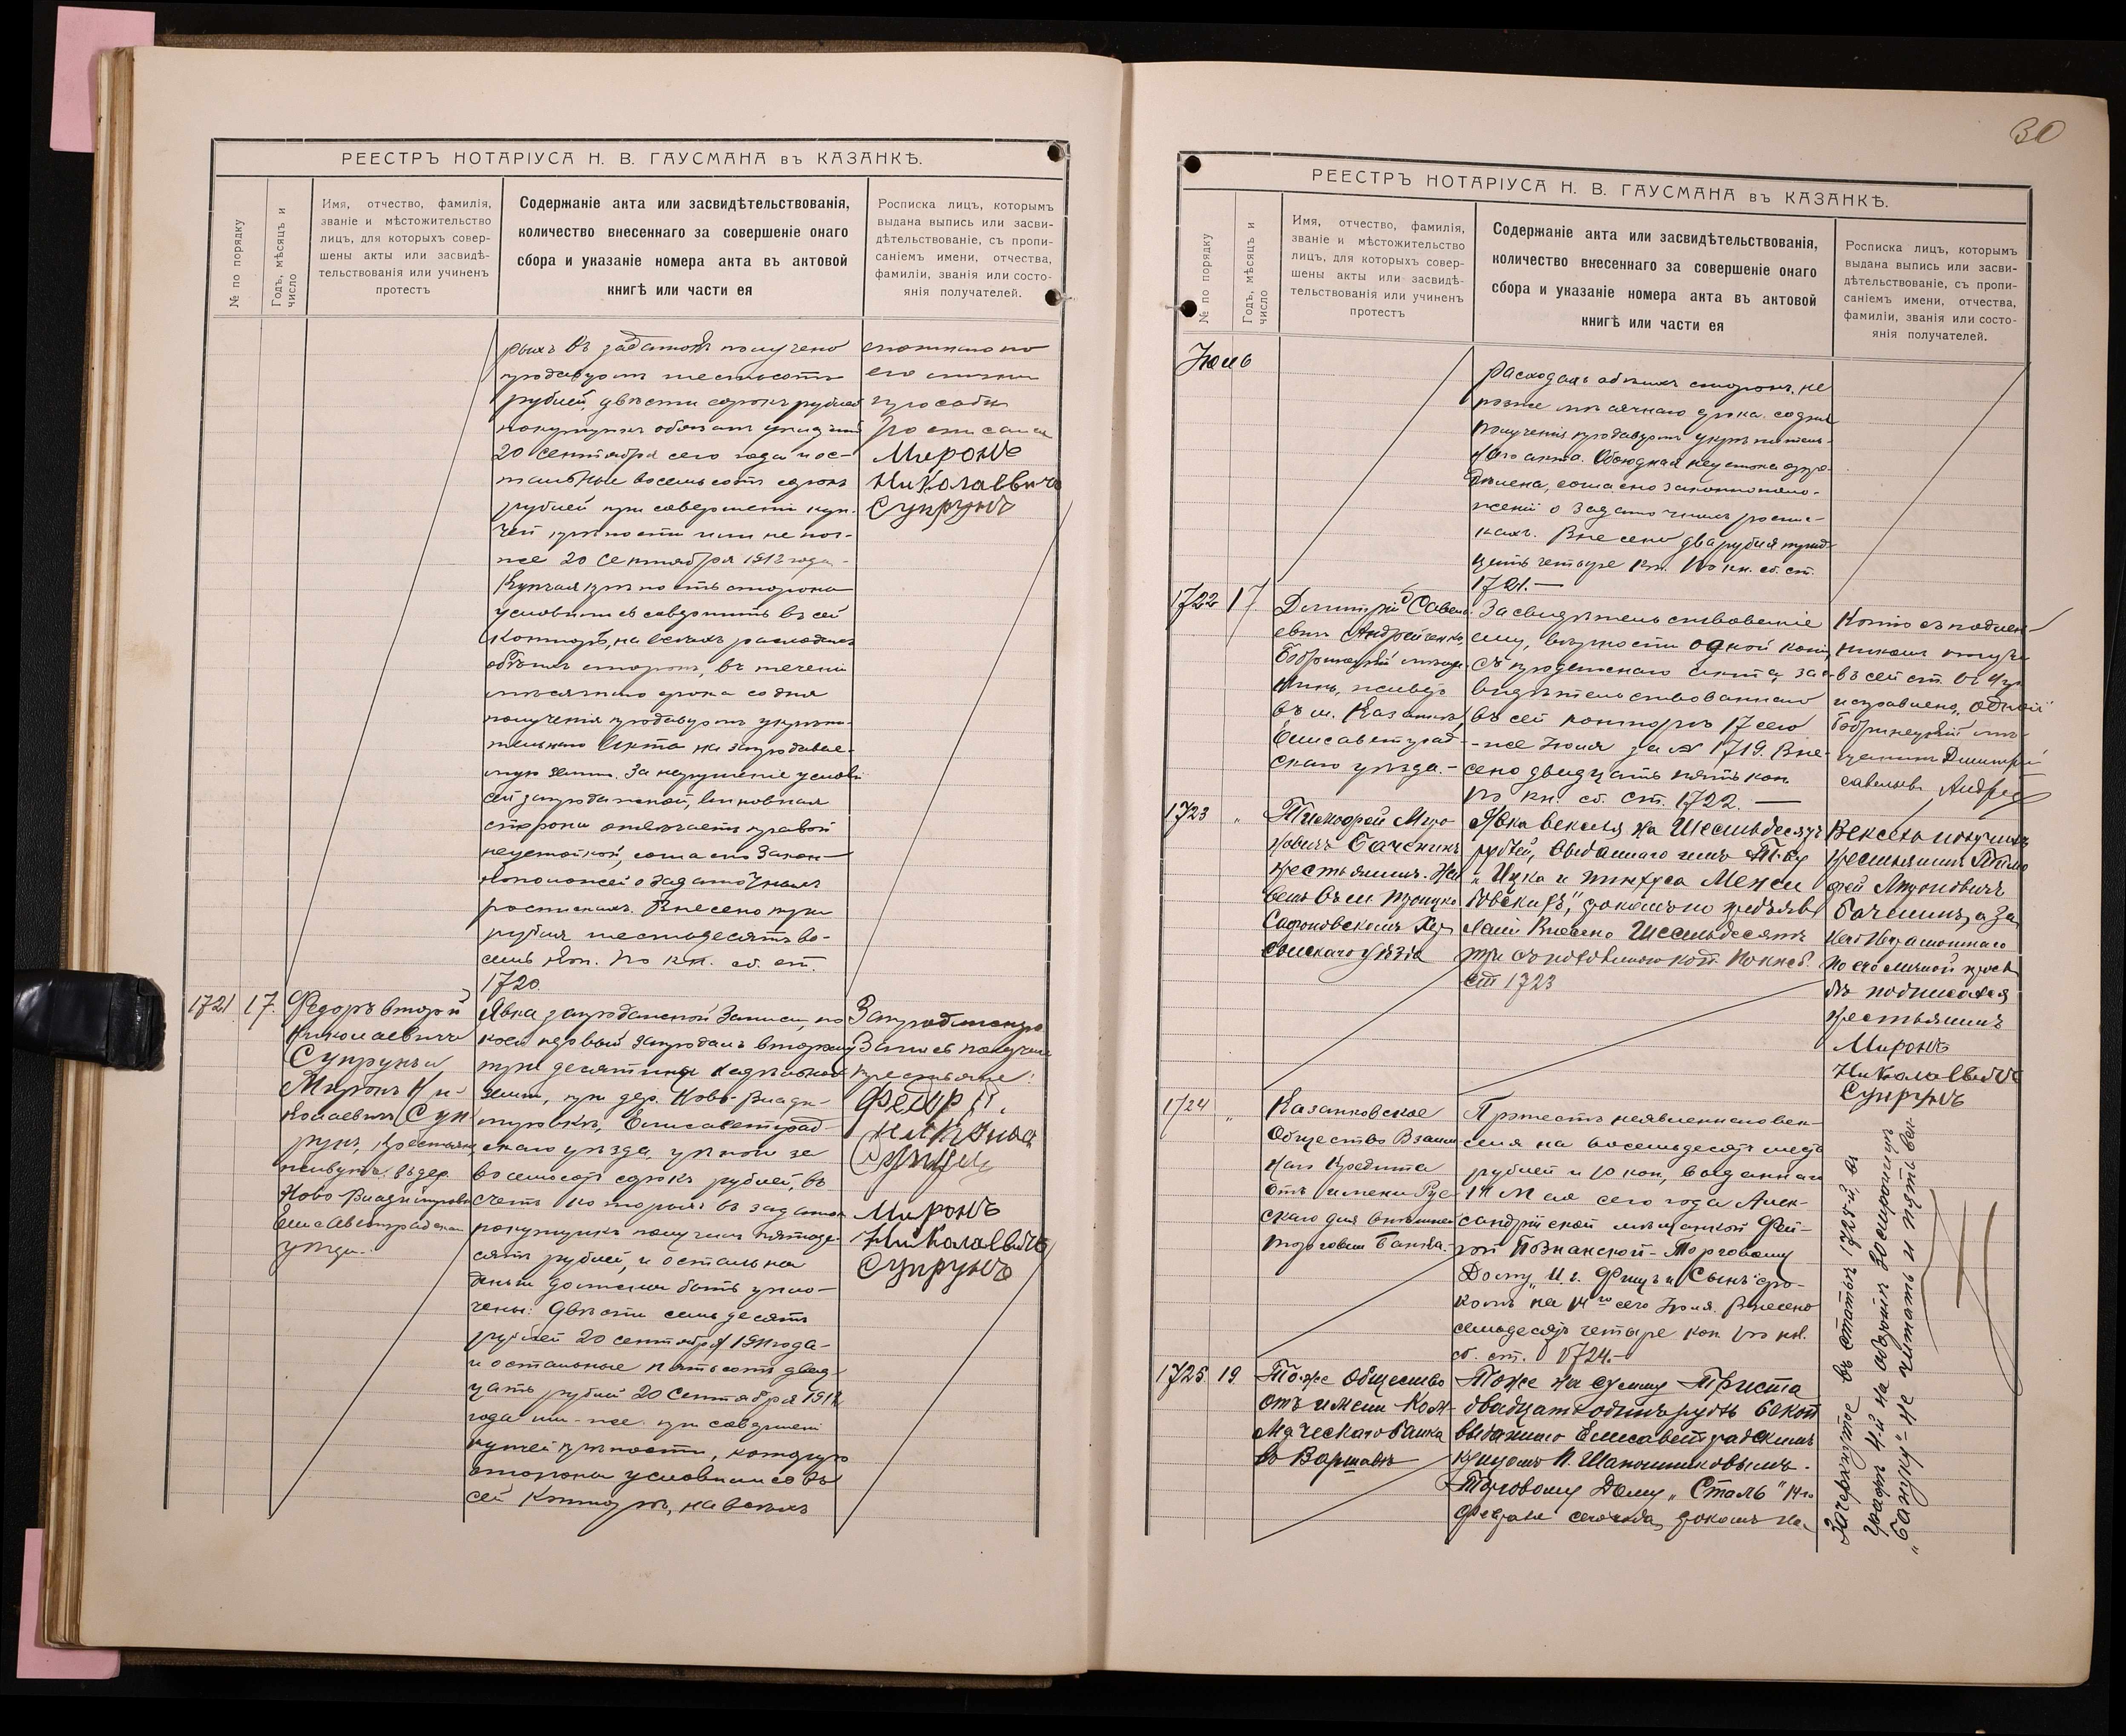 РЕЕСТРЪ НОТАРІУСА Н. В. ГАУСМАНА въ КАЗАНКѢ.
№ по порядку
Годъ, мѣсяцъ и
число
Имя, отчество, фамилія,
званіе и мѣстожительство
лицъ, для которыхъ совер-
шены акты или засвидѣ-
тельствованія или учиненъ
протестъ
Содержаніе акта или засвидѣтельствованія,
количество внесеннаго за совершеніе онаго
сбора и указаніе номера акта въ актовой
книгѣ или части ея
Росписка лицъ, которымъ
выдана выпись или засви-
дѣтельствованіе, съ пропи-
саніемъ имени, отчества,
фамиліи, званія или состо-
янія получателей.
рыхъ въ задатокъ получено
продавцомъ шестьсотъ
рублей, двѣсти сорокъ рублей
покупщикъ обязанъ
20 сентября сего года и ос-
тальные восемьсотъ сорокъ
рублей при совершеніи куп-
чей крѣпости или не поз-
же 20 сентября 1912 года.
Купчая крѣпость стороны
условились совершить въ сей
конторѣ, на всѣхъ расходахъ
обѣихъ сторонъ, въ теченіи
мѣсячнаго срока со дня
полученія продавцомъ укрѣпи-
тельнаго акта на запродавае-
мую землю. За нарушеніе условій
сей запродажной, виновная
сторона отвѣчаетъ правой
неустойкой, согласно Закон-
оположеній о задаточныхъ
роспискахъ. Внесено три
рубля шестьдесятъ во-
семь коп. По кн. сб. ст.
1720.
его личной
просьбѣ
росписался
Миронъ
Николаевичъ
Супрунъ
1721
17.
Федоръ второй
Николаевичъ
Супрунъ и
Миронъ Ни-
колаевичъ Суп
рунъ, крестьяне
живутъ въ дер.
Ново-Владимировкѣ
Елисаветградскаго
уѣзда.
Явка запродажной Записи, по
коей первый запродалъ второму
три десятины надѣльной
земли, при дер. Ново-Влади-
мировкѣ, Елисаветград-
скаго уѣзда, цѣною за
восемьсотъ сорокъ рублей, въ
счетъ которыхъ въ задатокъ
покупщикъ получилъ пятьде-
сятъ рублей, и остальныя
деньги должны быть упла-
чены: двѣсти семьдесятъ
рублей 20 сентября 1911 года
и остальные пятьсотъ двад-
цать рублей 20 Сентября 1912
года или-же при совершеніи
купчей крѣпости, которую
стороны условились въ
сей Конторѣ, на всѣхъ
Запродажную
Запись получили
крестьяне:
Федир II.
Миронъ
Николаевичъ
Супрунъ
30
РЕЕСТРЪ НОТАРІУСА Н. В. ГАУСМАНА въ КАЗАНКѢ.
№ по порядку
Годъ, мѣсяцъ и
число
Имя, отчество, фамилія,
званіе и мѣстожительство
лицъ, для которыхъ совер-
шены акты или засвидѣ-
тельствованія или учиненъ
протестъ
Содержаніе акта или засвидѣтельствованія,
количество внесеннаго за совершеніе онаго
сбора и указаніе номера акта въ актовой
книгѣ или части ея
Росписка лицъ, которымъ
выдана выпись или засви-
дѣтельствованіе, съ пропи-
саніемъ имени, отчества,
фамиліи, званія или состо-
янія получателей.
Іюль
расходахъ обѣихъ сторонъ, не
позже мѣсячнаго срока со дня
полученія продавцомъ укрѣпитель-
наго акта. Обоюдная неустойка опре-
дѣлена, согласно законополо-
женій о задаточныхъ роспис-
кахъ. Внесено два рубля трид-
цать четыре коп. По кн. сб. ст.
1721.—
1722
17
Дмитрій Савель-
евичъ Андрейченко,
Бобринецкій мѣща-
нинъ, живетъ
въ м. Казанкѣ,
Елисаветград-
скаго уѣзда.—
Засвидѣтельствованіе
ему, вѣрности одной копіи,
съ продажнаго акта, зас-
видѣтельствованнаго
въ сей конторѣ 17 сего
-же Іюля за № 1719. Вне-
сено двадцать пять коп.
По кн. сб. ст. 1722. —
Копію съ подлин-
никомъ получилъ
исправлено „одной“
Бобринецкій мѣ-
щанинъ Дмитрій
Савельевъ Андрей
1723
"
Тимофей Миро-
новичъ Баченинъ
крестьянинъ. Жи
Сафоновскомъ Хер
сонскаго уѣзда
Явка векселя на Шестьдесятъ
рублей, выданнаго имъ Т. Ду
„Ицка и Пинхуса Межи
товскихъ“, срокомъ по предъяв
леніи. Внесено Шестьдесятъ
три съ половиною коп. По кн. сб.
ст 1723
Вексель получилъ
крестьянинъ Тимо
фей Мироновичъ
Баченинъ, а за
него неграмотнаго
по его личной прось
бѣ подписался
крестьянинъ
Миронъ
Николаевичъ
Супрунъ
1724
"
Казанковское
Общество Взаим
наго Кредита
отъ имени Рус-
скаго для внѣшней
торговли Банка.
Протестъ неявленнаго век-
селя на восемьдесятъ шесть
рублей и 10 коп., выданнаго
14 Мая сего года Алек-
сандрійской мѣщанкой Фей-
гой Познанской-Торговому
Дому „И. г. Фишъ и Сынъ“ сро-
комъ на 14го сего Іюля. Внесено
семьдесятъ четыре коп. По кн.
сб. ст. 1724.—
1725
19
Тоже Общество
отъ имени Ком-
мерческаго Банка
въ Варшавѣ
Тоже на сумму Триста
двадцать одинъ рубль 60 коп
выданнаго Елисаветградскимъ
купцомъ И. Шапошниковымъ.
Торговому Дому „Сталь“ 14го
Февраля сего года, срокомъ на
Зачеркнутое въ статьѣ 1725-й, въ
графѣ 4-й
„Банку“ - не читать и